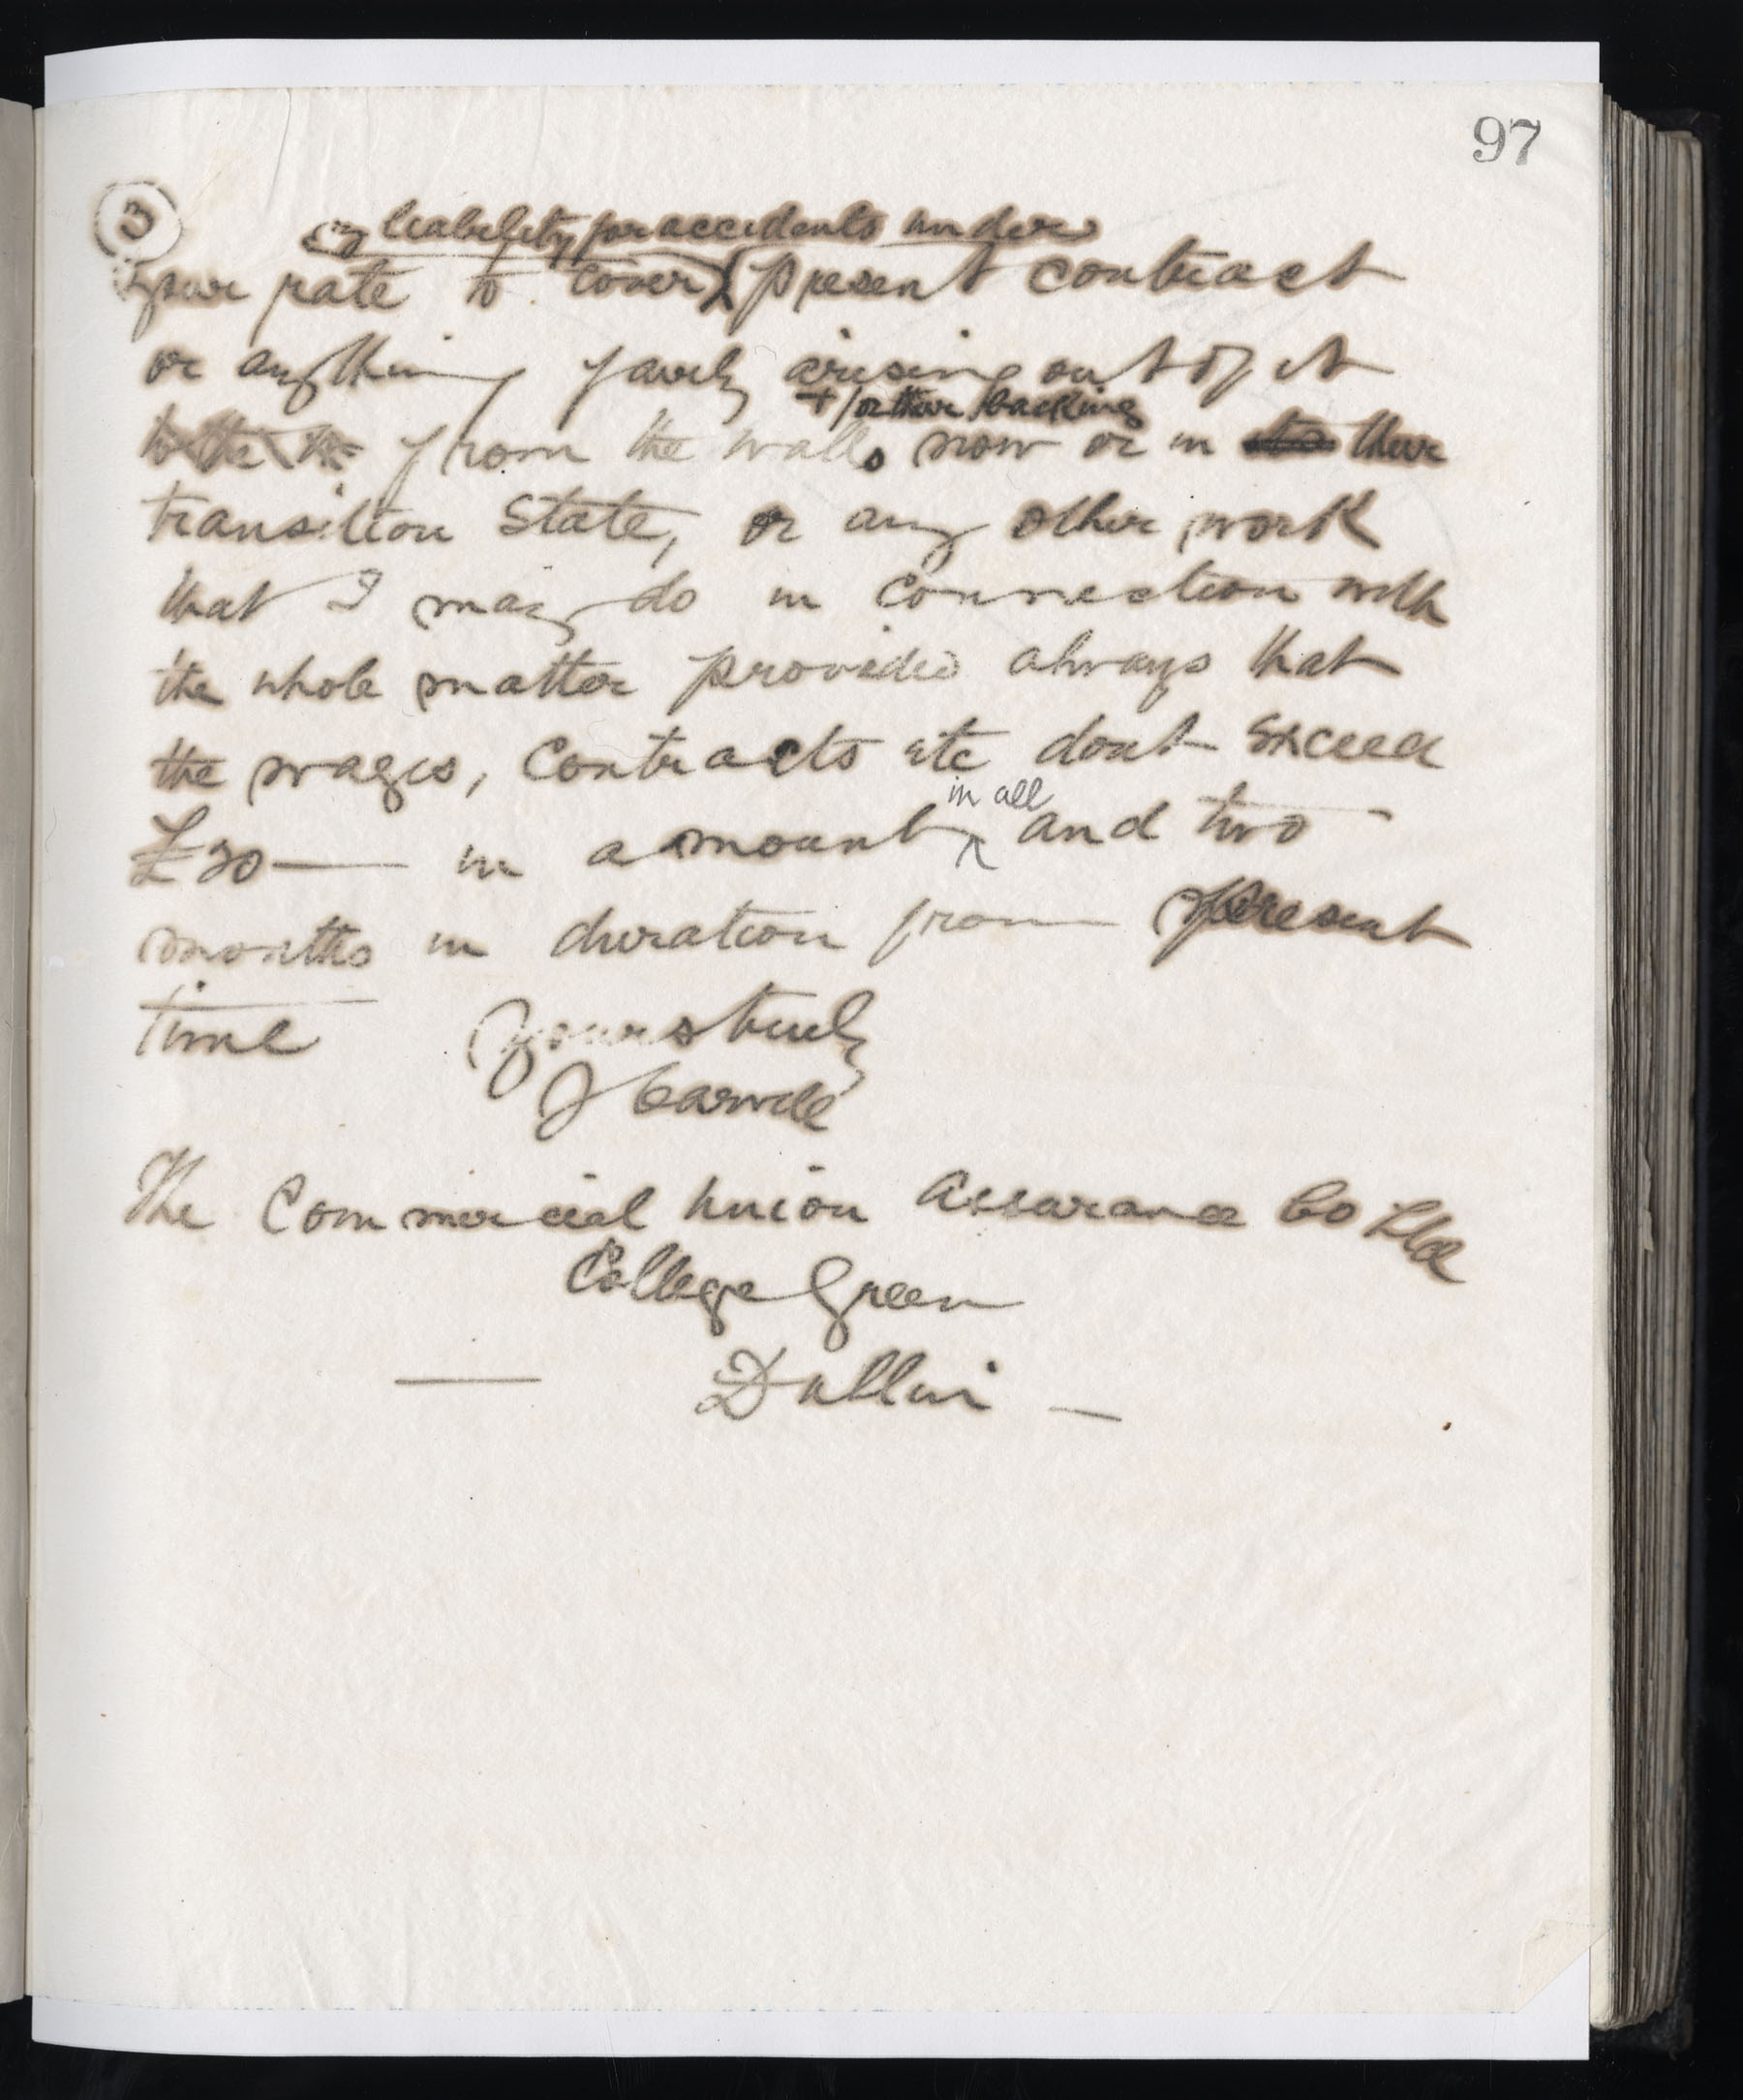 97
3
my liability for accidents under
your rate to cover present contract
or anything fairly arising out of it
+/or their backing
to the from the walls now or in their
transition State, or any other work
that I may do in Connection with
the whole matter provided always that
the wages, Contracts etc dont Exceed
in all
£30— in amount and two
months in duration from present
time Yours truly
The Commercial Union Assurance Co Ltd
College Green
— Dublin —